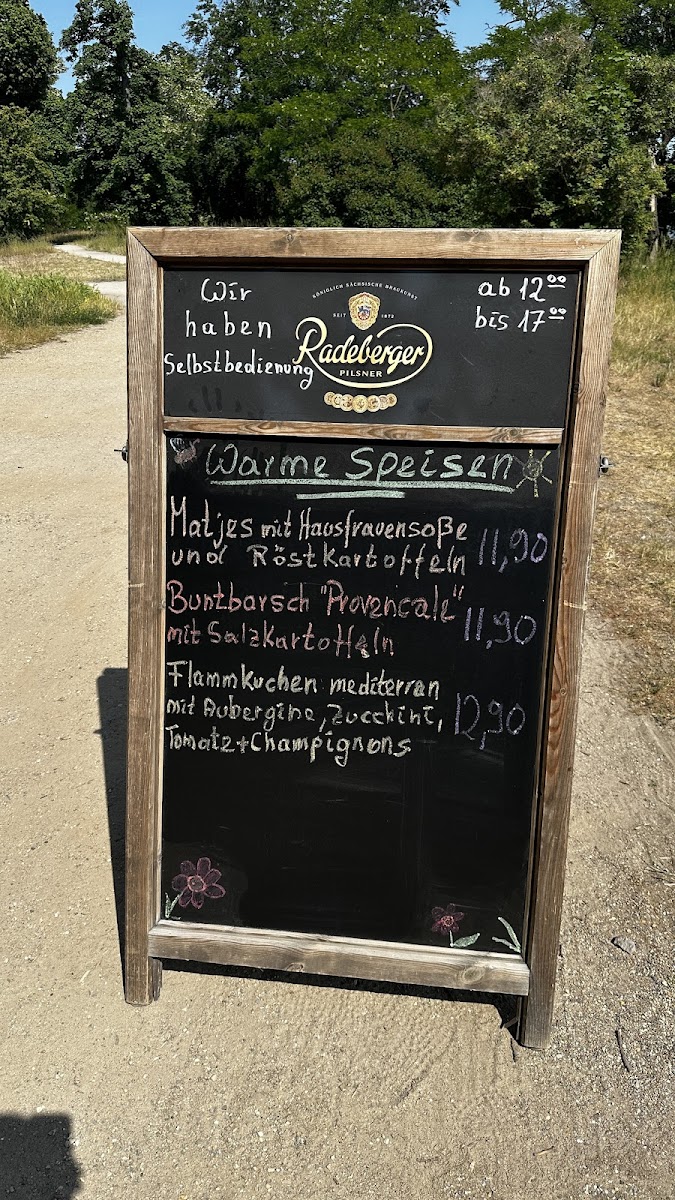 Wir
haben
Selbstbedienung
KÖNIGLICH SÄCHSISCHE BRAUKUNST
SEIT 1872
Radeberger
PILSNER
ab 12⁰⁰
bis 17⁰⁰
Warme Speisen
Matjes mit Hausfrauensoße
und Röstkartoffeln 11,90
Buntbarsch "Provencale"
mit Salzkartoffeln 11,90
Flammkuchen mediterran
mit Aubergine, Zucchini, 12,90
Tomate+Champignons